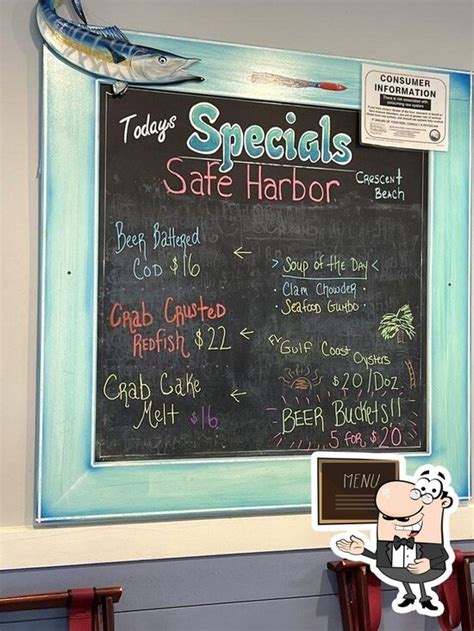 Todays Specials
Safe Harbor
Crescent
Beach
CONSUMER
INFORMATION
Beer Battered
Cod $16
Crab Crusted
Redfish $22
Crab Cake
Melt $16
> Soup of the Day <
Clam Chowder
Seafood Gumbo
Gulf Coast Oysters
$20/Doz.
BEER Buckets!!
5 for $20
MENU